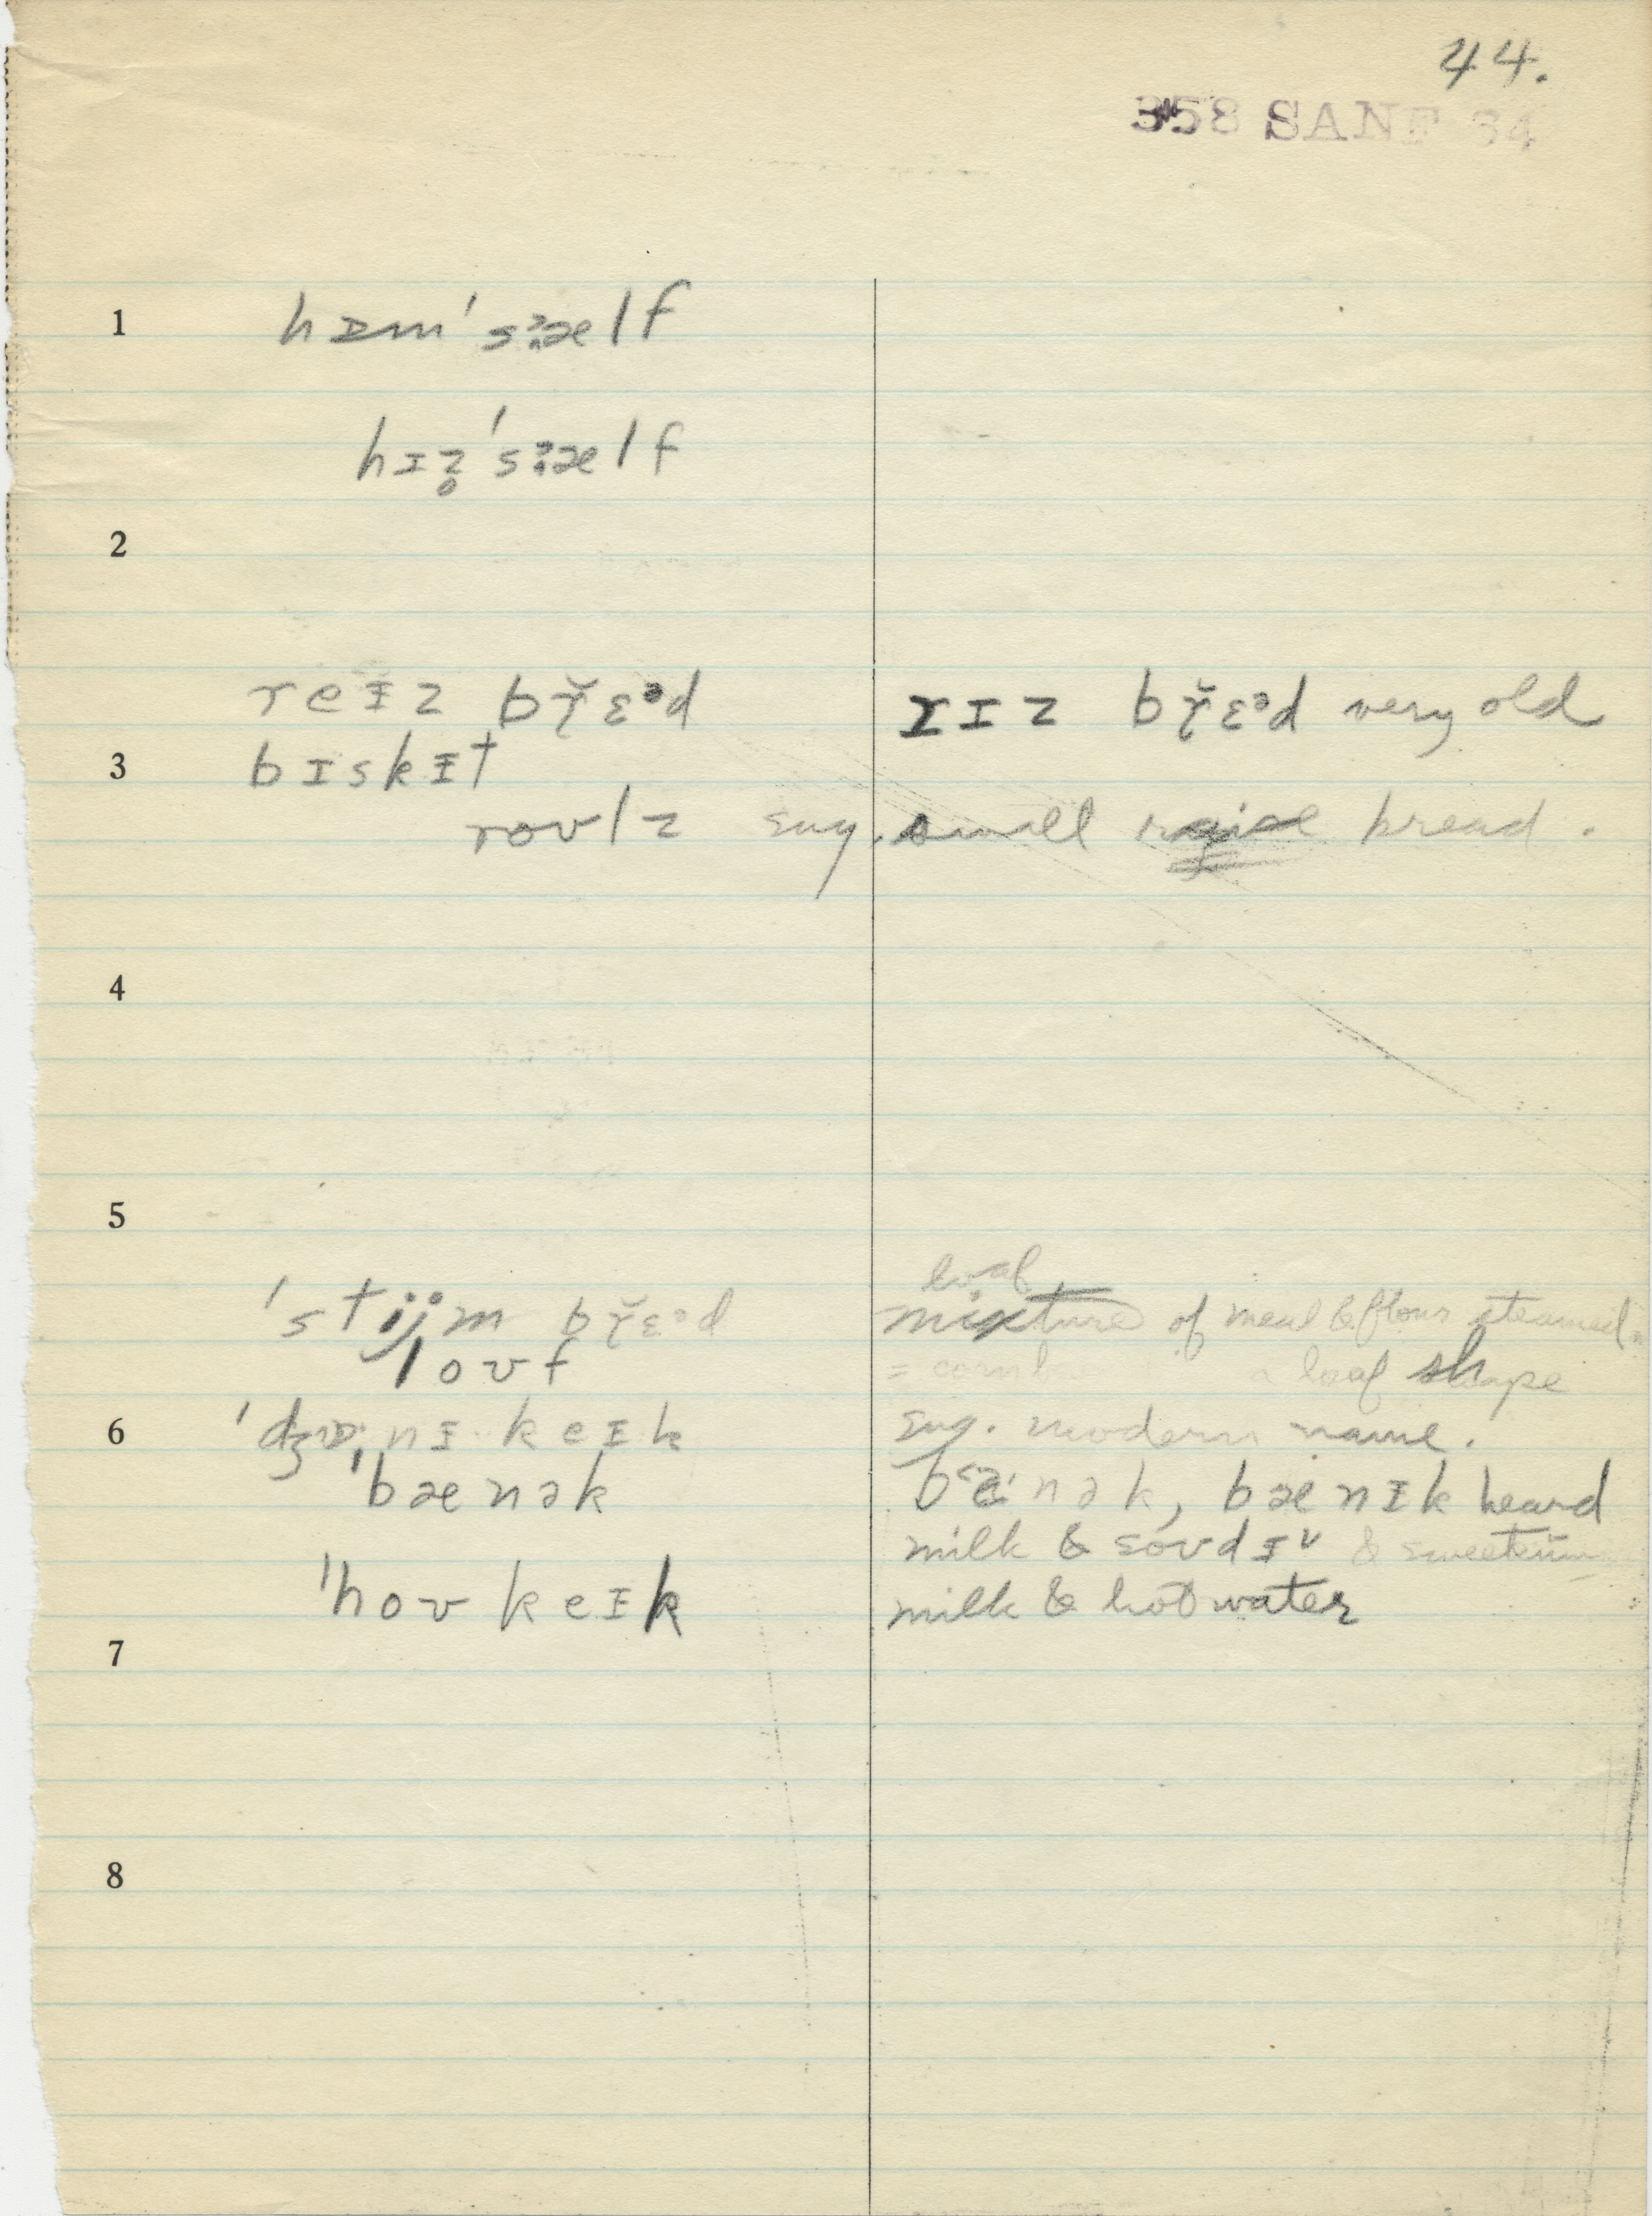 44.
358 SANF 34
1 hɪm'sælf
hɪz̥'sælf
2
reɪz brɛᵊd rɪz brɛᵊd very old
3 bɪskɪt
roʊlz sug. small bread.
4
5
loaf
'stijm brɛᵊd mixture of meal & flour steamed
loʊf loaf shape
6 nɪ keɪk sug. modern name.
'bænək nək, bænɪk heard
milk & soʊdɪ &
'hoʊ keɪk milk & hot water
7
8